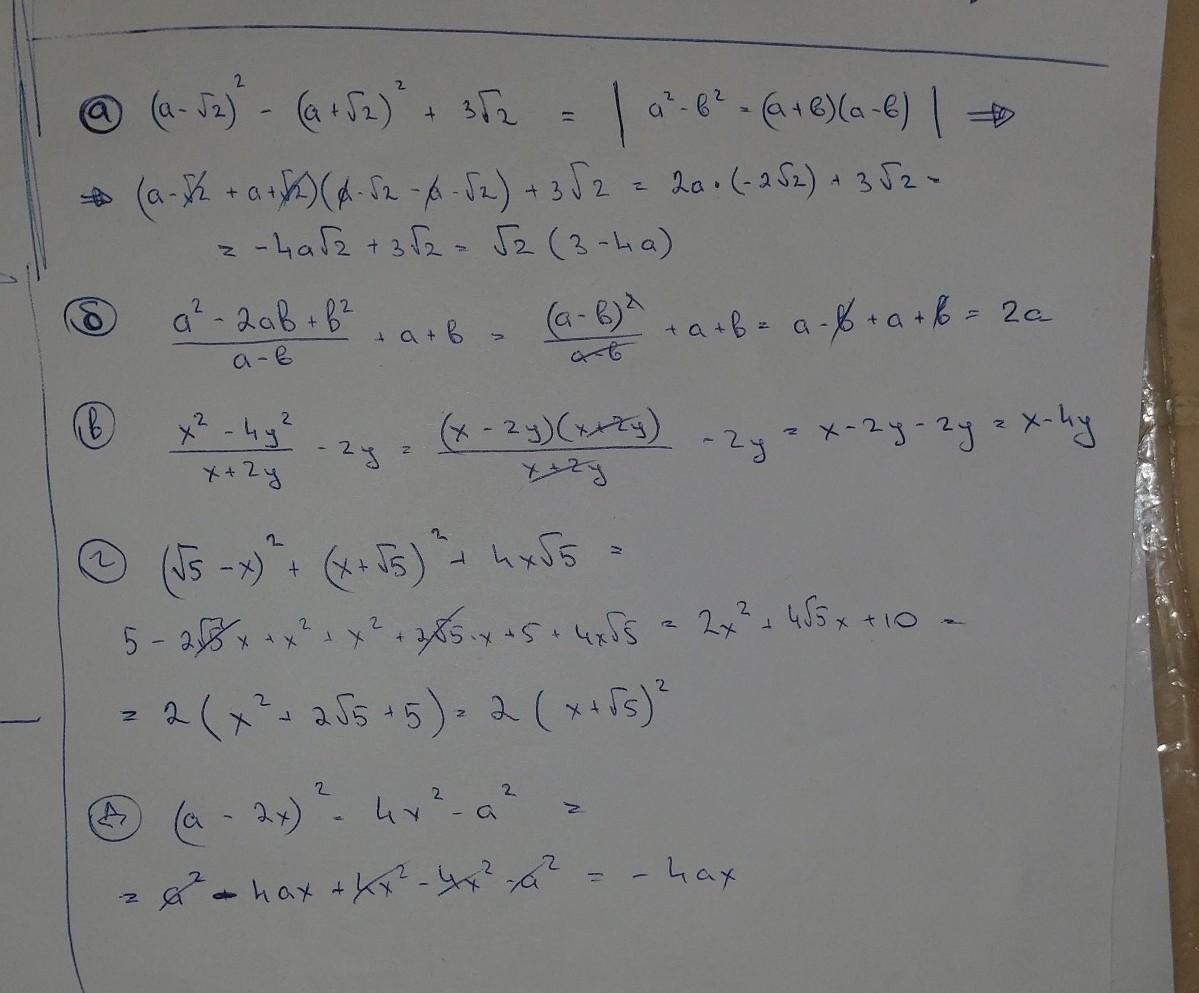 а) (a-√2)² - (a+√2)² + 3√2 = | a² - b² = (a+b)(a-b) | ⇒
⇒ (a-√2 + a+√2)(a-√2 -a-√2) + 3√2 = 2a·(-2√2) + 3√2 =
= -4a√2 + 3√2 = √2 (3-4a)
б) (a² - 2ab + b²)/(a-b) + a + b = (a-b)²/(a-b) + a+b = a-b+a+b = 2a
в) (x² - 4y²)/(x+2y) - 2y = (x-2y)(x+2y)/(x+2y) - 2y = x-2y-2y = x-4y
г) (√5-x)² + (x+√5)² + 4x√5 =
5 - 2√5x + x² + x² + 2√5·x + 5 + 4x√5 = 2x² + 4√5x + 10 =
= 2(x² + 2√5 + 5) = 2(x+√5)²
д) (a - 2x)² - 4x² - a² =
= a² - 4ax + 4x² - 4x² - a² = -4ax